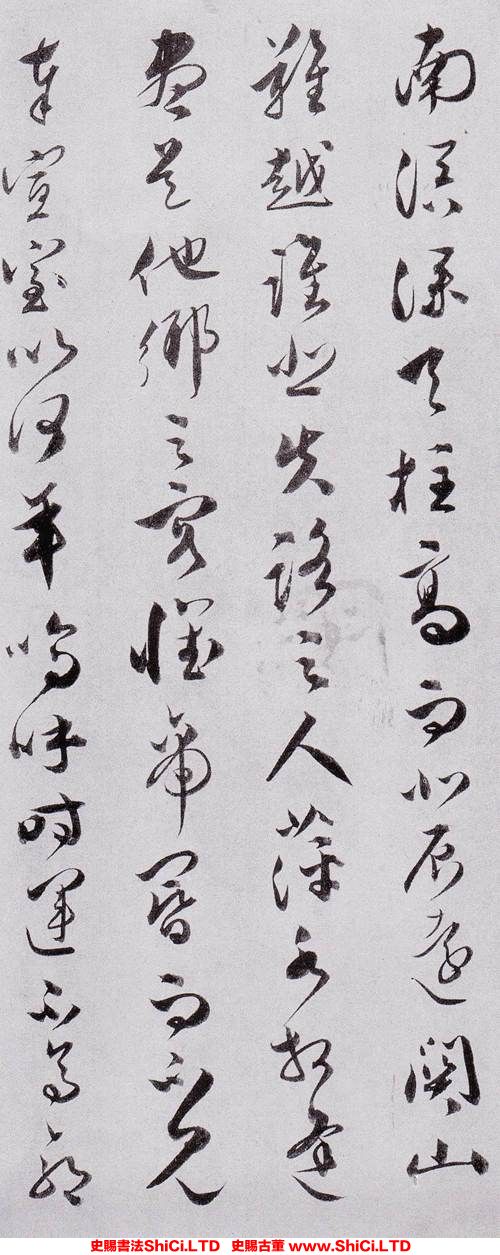 南溟深天柱高而北辰遠關山
難越誰悲失路之人萍水相逢
盡是他鄉之客懷帝閽而不見
奉宣室以何年嗚呼時運不齊命
史賜書法ShiCi.LTD 史賜古董 www.ShiCi.LTD